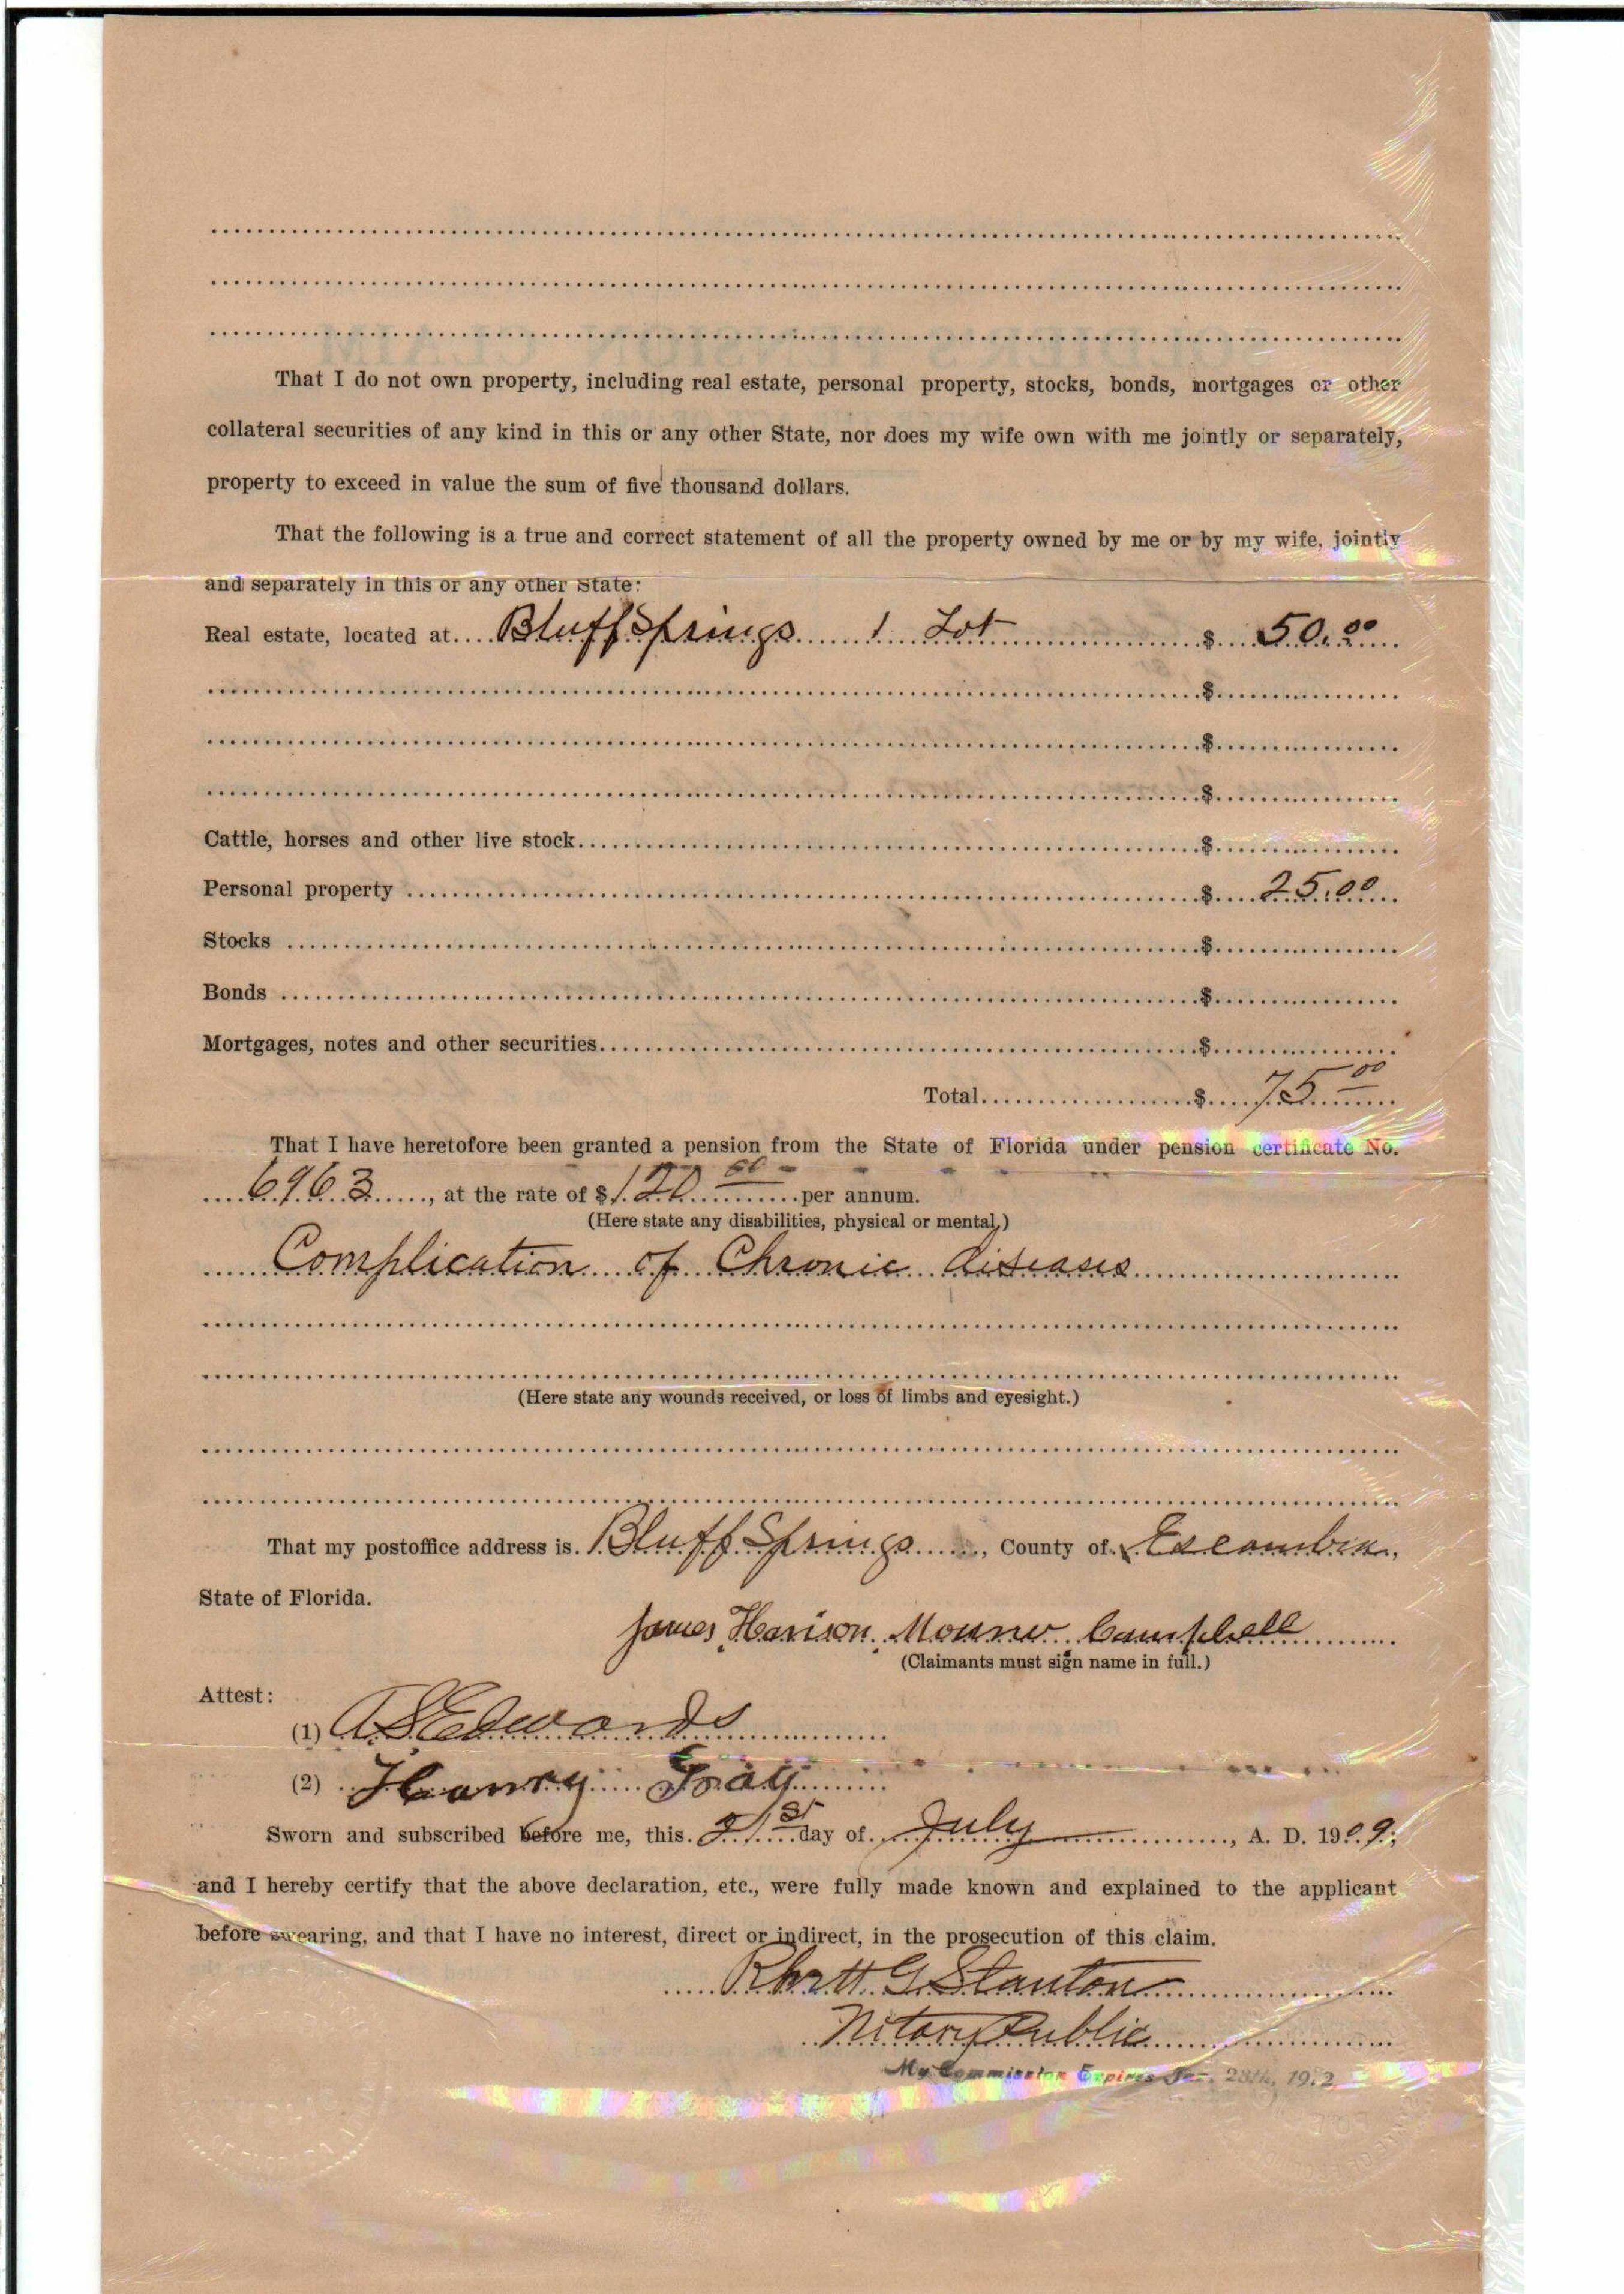 That I do not own property, including real estate, personal property, stocks, bonds, mortgages or other
collateral securities of any kind in this or any other State, nor does my wife own with me jointly or separately,
property to exceed in value the sum of five thousand dollars.
That the following is a true and correct statement of all the property owned by me or by my wife, jointly
and separately in this or any other State:
Real estate, located at Bluff Springs 1 Lot $ 50.00
$
$
$
Cattle, horses and other live stock $
Personal property $ 25.00
Stocks $
Bonds $
Mortgages, notes and other securities $
Total $ 75 00
That I have heretofore been granted a pension from the State of Florida under pension certificate No.
6963, at the rate of $ 120 00 per annum.
(Here state any disabilities, physical or mental,)
Complication of Chronic diseases
(Here state any wounds received, or loss of limbs and eyesight.)
That my postoffice address is Bluff Springs, County of Escambia,
State of Florida.
James Harison Campbell
(Claimants must sign name in full.)
Attest:
(1) A S Edwards
(2) Henry Gray
Sworn and subscribed before me, this 21st day of July, A. D. 1909;
and I hereby certify that the above declaration, etc., were fully made known and explained to the applicant
before swearing, and that I have no interest, direct or indirect, in the prosecution of this claim.
G Stanton
Notary Public
My Commission Expires 28th, 1912